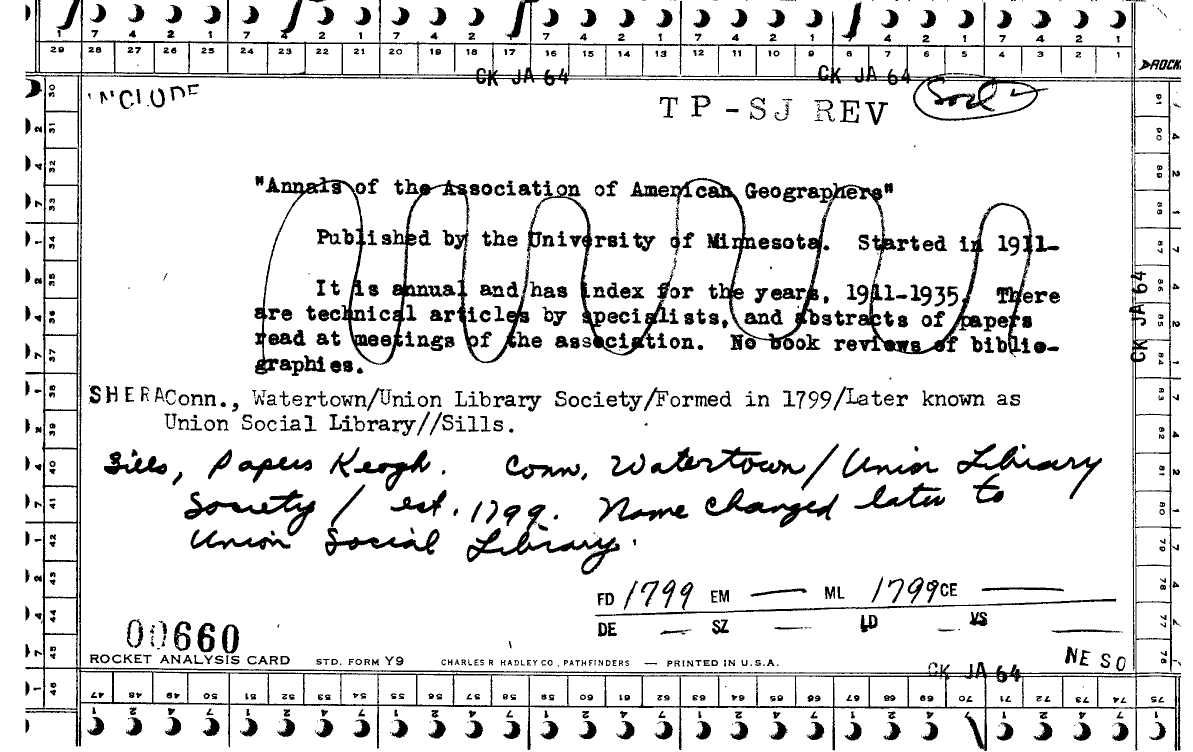 29 28 27 26 25 24 23 22 21 20 19 18 17 16 15 14 13 12 11 10 9 8 7 6 5 4 3 2 1
CK JA 64 CK JA 64
INCLUDE
TP-SJ REV
"Annals of the Association of American Geographers"
Published by the University of Minnesota. Started in 1911-
It is annual and has index for the years, 1911-1935. There
are technical articles by specialists, and abstracts of papers
read at meetings of the association. No book reviews of biblio-
graphies.
CK JA 64
SHERA Conn., Watertown/Union Library Society/Formed in 1799/Later known as
Union Social Library//Sills.
Sills, Papers Keogh. Conn. Watertown/Union Library
Society / est. 1799. Name changed later to
Union Social Library.
FD 1799 EM — ML 1799 CE —
DE — SZ — LD — VS —
00660
ROCKET ANALYSIS CARD STD. FORM Y9 CHARLES R HADLEY CO., PATHFINDERS — PRINTED IN U.S.A.
CK JA 64
NE SO
47 48 49 50 51 52 53 54 55 56 57 58 59 60 61 62 63 64 65 66 67 68 69 70 71 72 73 74 75